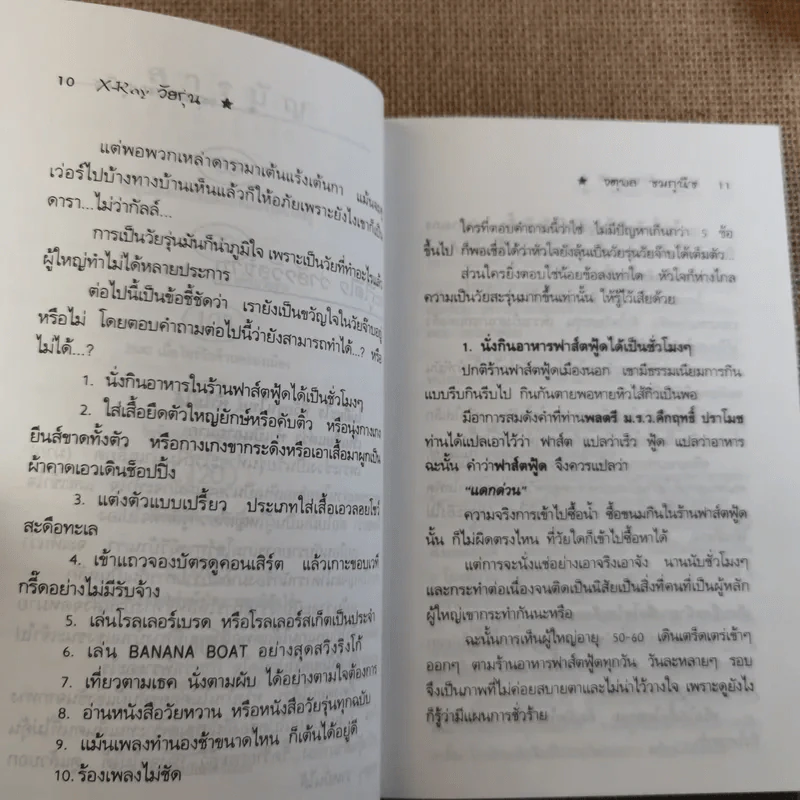 10 X-Ray วัยรุ่น ★
แต่พอพวกเหล่าดารามาเต้นแร้งเต้นกา แม้น
เว่อร์ไปบ้างทางบ้านเห็นแล้วก็ให้อภัยเพราะยังไงเขาก็เป็น
ดารา...ไม่ว่ากัลล์...
การเป็นวัยรุ่นมันก็น่าภูมิใจ เพราะเป็นวัยที่ทำอะไรแล้ว
ผู้ใหญ่ทำไม่ได้หลายประการ
ต่อไปนี้เป็นข้อชี้ชัดว่า เรายังเป็นขวัญใจในวัยจ๊าบอยู่
หรือไม่ โดยตอบคำถามต่อไปนี้ว่ายังสามารถทำได้...? หรือ
ไม่ได้...?
1. นั่งกินอาหารในร้านฟาส์ตฟู้ดได้เป็นชั่วโมงๆ
2. ใส่เสื้อยืดตัวใหญ่ยักษ์หรือคับติ้ว หรือนุ่งกางเกง
ยีนส์ขาดทั้งตัว หรือกางเกงขากระดิ่งหรือเอาเสื้อมาผูกเป็น
ผ้าคาดเอวเดินช็อปปิ้ง
3. แต่งตัวแบบเปรี้ยว ประเภทใส่เสื้อเอวลอยโชว์
สะดือทะเล
4. เข้าแถวจองบัตรดูคอนเสิร์ต แล้วเกาะขอบเวที
กรี๊ดอย่างไม่มีรับจ้าง
5. เล่นโรลเลอร์เบรด หรือโรลเลอร์สเก็ตเป็นประจำ
6. เล่น BANANA BOAT อย่างสุดสวิงริงโก้
7. เที่ยวตามเธค นั่งตามผับ ได้อย่างตามใจต้องการ
8. อ่านหนังสือวัยหวาน หรือหนังสือวัยรุ่นทุกฉบับ
9. แม้นเพลงทำนองช้าขนาดไหน ก็เต้นได้อยู่ดี
10. ร้องเพลงไม่ชัด
★ จตุพล ชมภูนิช 11
ใครที่ตอบคำถามนี้ว่าใช่ ไม่มีปัญหาเกินกว่า 5 ข้อ
ขึ้นไป ก็พอเชื่อได้ว่าหัวใจยังตุ้นเป็นวัยรุ่นวัยจ๊าบได้เต็มตัว
ส่วนใครยิ่งตอบใช่น้อยข้อลงเท่าใด หัวใจก็ห่างไกล
ความเป็นวัยสะรุ่นมากขึ้นเท่านั้น ให้รู้ไว้เสียด้วย
1. นั่งกินอาหารฟาส์ตฟู้ดได้เป็นชั่วโมงๆ
ปกติร้านฟาส์ตฟู้ดเมืองนอก เขามีธรรมเนียมการกิน
แบบรีบกินรีบไป กินกันตายพอหายหิวไส้กิ่วเป็นพอ
มีอาการสมดังคำที่ท่านพลตรี ม.ร.ว.คึกฤทธิ์ ปราโมช
ท่านได้แปลเอาไว้ว่า ฟาส์ต แปลว่าเร็ว ฟู้ด แปลว่าอาหาร
ฉะนั้น คำว่าฟาส์ตฟู้ด จึงควรแปลว่า
"แดกด่วน"
ความจริงการเข้าไปซื้อน้ำ ซื้อขนมกินในร้านฟาส์ตฟู้ด
นั้น ก็ไม่ผิดตรงไหน ที่วัยใดก็เข้าไปซื้อหาได้
แต่การจะนั่งแช่อย่างเอาจริงเอาจัง นานนับชั่วโมงๆ
และกระทำต่อเนื่องจนติดเป็นนิสัยเป็นสิ่งที่คนที่เป็นผู้หลัก
ผู้ใหญ่เขากระทำกันนะหรือ
ฉะนั้นการเห็นผู้ใหญ่อายุ 50-60 เดินเตร็ดเตร่เข้าๆ
ออกๆ ตามร้านอาหารฟาส์ตฟู้ดทุกวัน วันละหลายๆ รอบ
จึงเป็นภาพที่ไม่ค่อยสบายตาและไม่น่าไว้วางใจ เพราะดูยังไง
ก็รู้ว่ามีแผนการชั่วร้าย